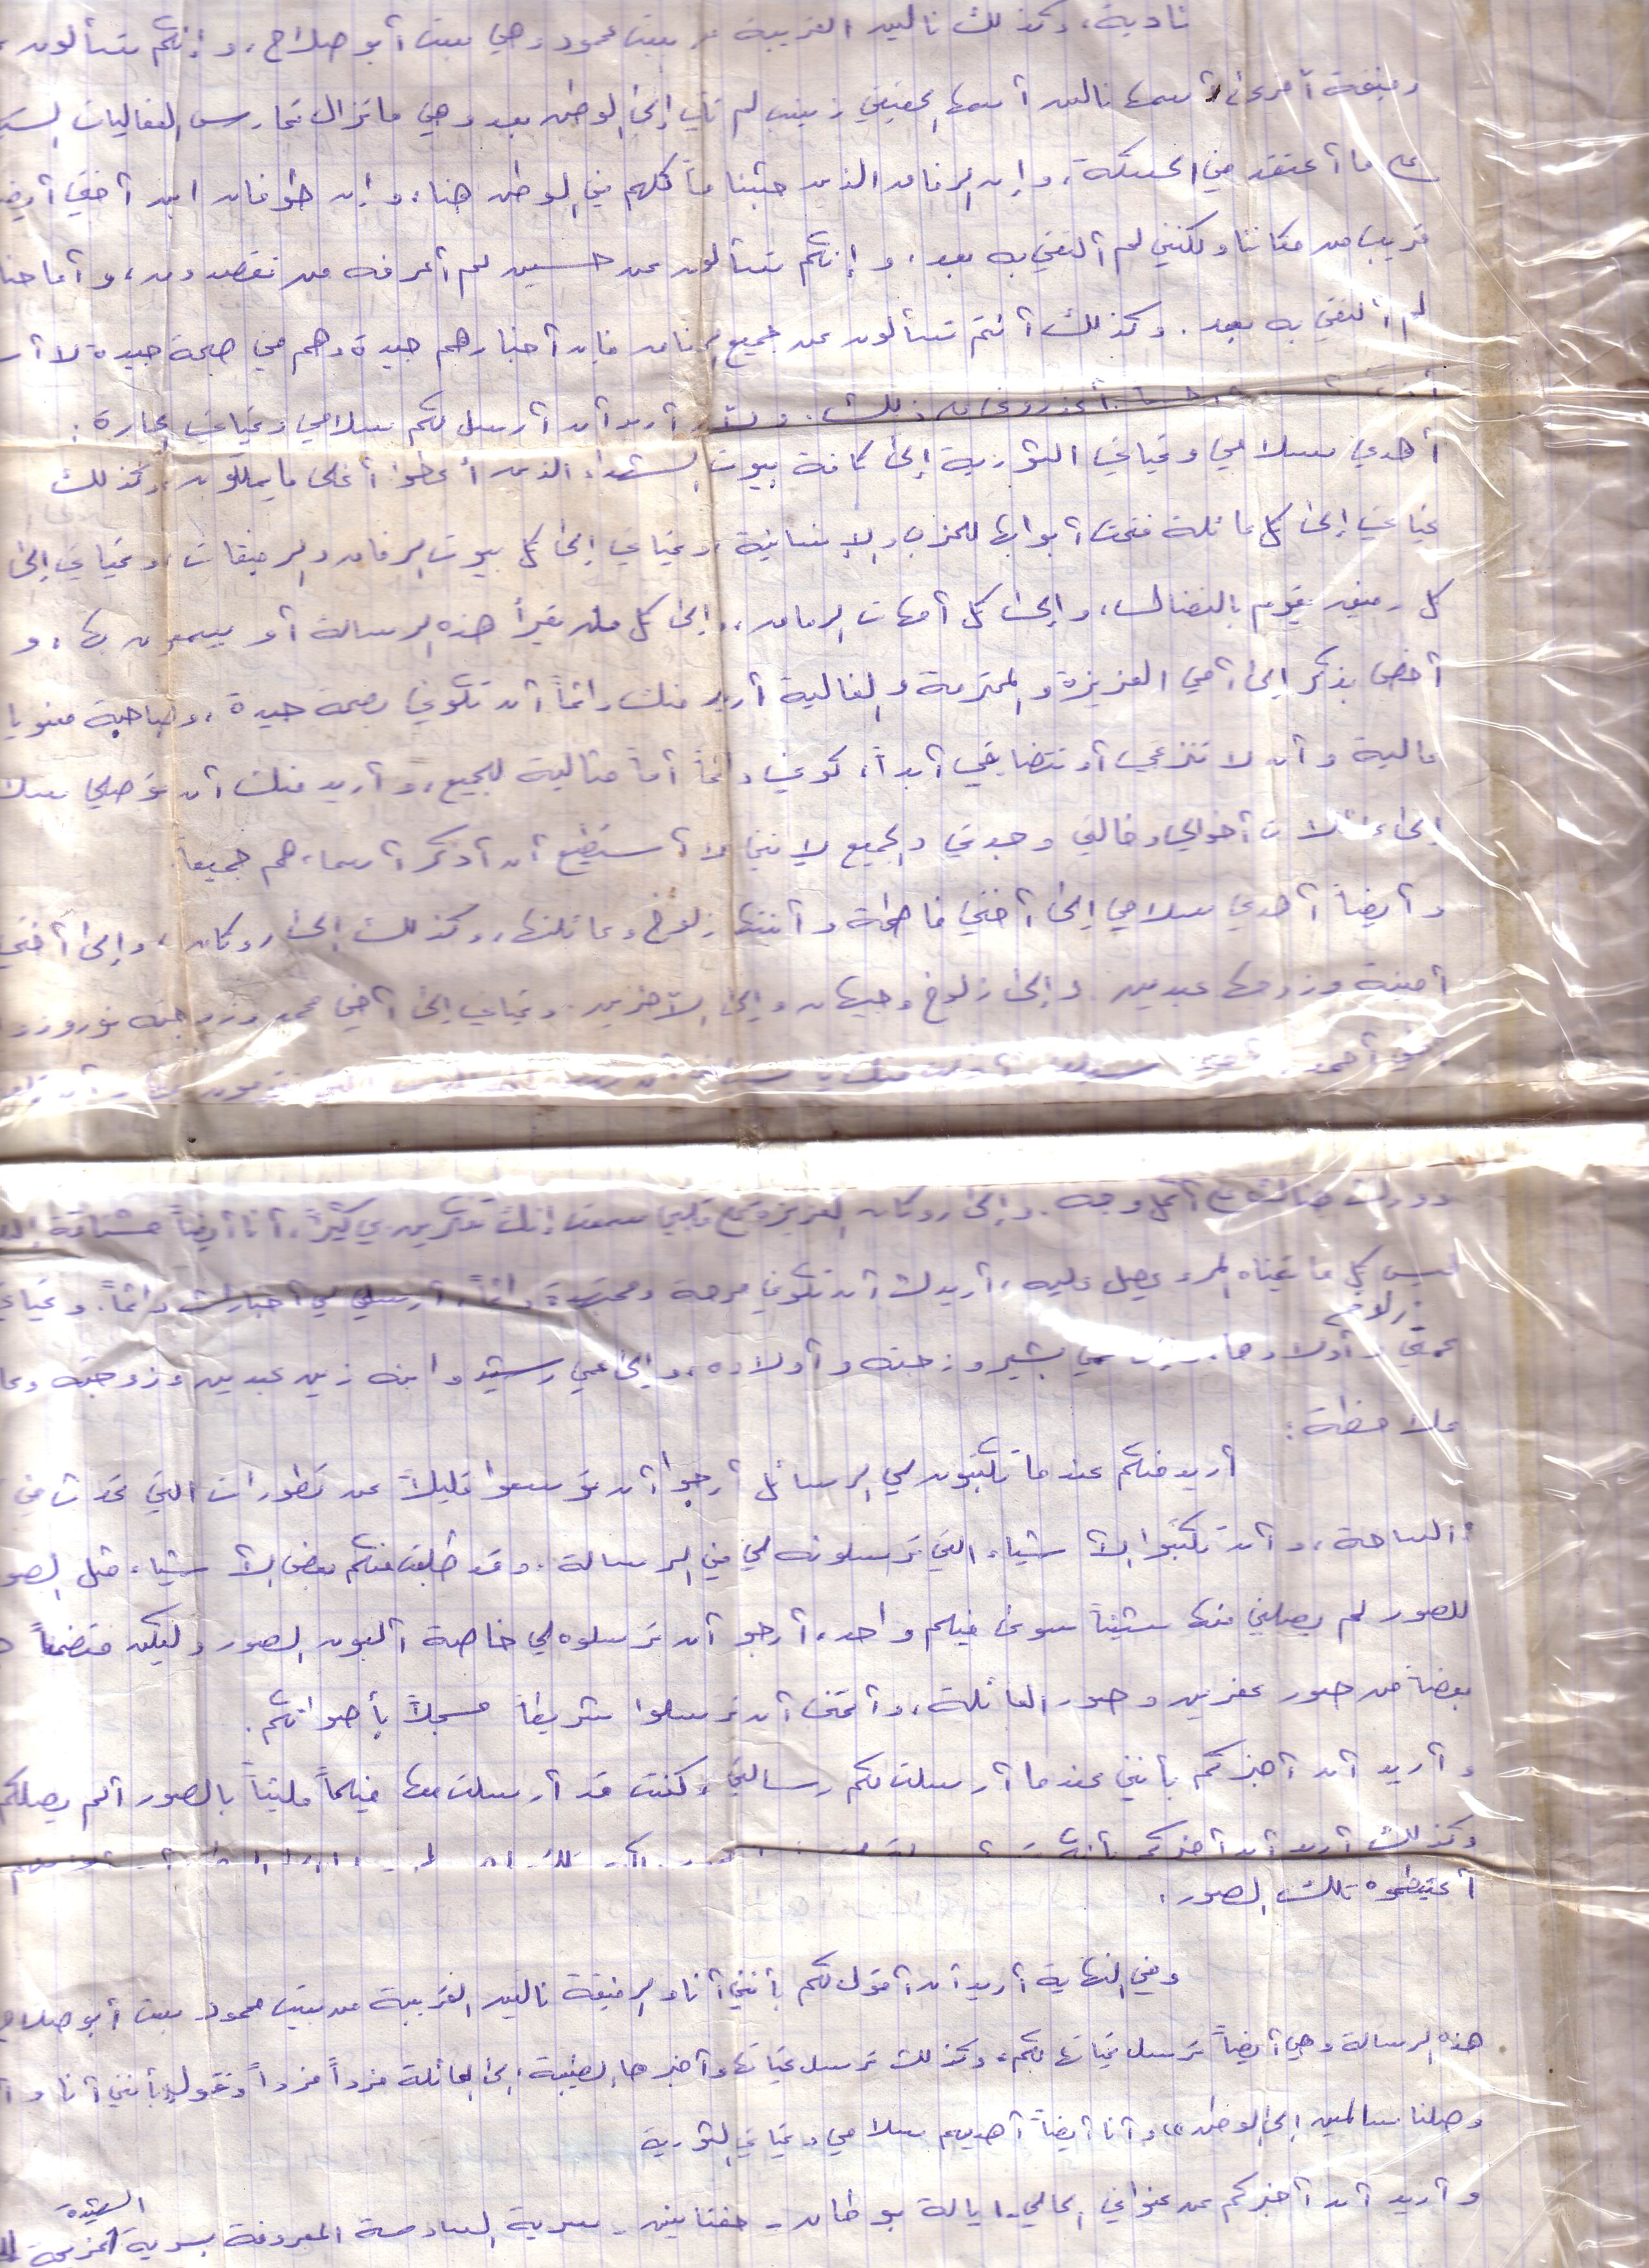 نادية، وكذلك نالين القريبة من بيت محمود وهي بيت أبو صلاح، وإنكم تسألون
رفيقة أخرى اسمها نالين اسمها الحقيقي زينب لم تأتي إلى الوطن بعد وهي ما تزال تمارس الفعاليات
على ما أعتقد في الحسكة، وإن الرفاق الذين جئنا معاً كلهم في الوطن هنا، وإن طوفان ابن أختي أيضاً
قريب من مكاننا ولكنني لم ألتقي به بعد، وإنكم تسألون عن حسين لم أعرفه من تقصدون، وأما
لم ألتقي به بعد. وكذلك أنتم تسألون عن جميع الرفاق فإن أخبارهم جيدة وهم في صحة جيدة لا
ذلك. و أريد أن أرسل لكم سلامي وتحياتي الحارة:
أهدي سلامي وتحياتي الثورية إلى كافة بيوت الشهداء الذين أعطوا أغلى ما يملكون، وكذلك
تحياتي إلى كل عائلة فتحت أبوابها للحزب والإنسانية، وتحياتي إلى كل بيوت الرفاق والرفيقات، وتحياتي إلى
كل رفيق يقوم بالنضال، وإلى كل أمهات الرفاق، وإلى كل من يقرأ هذه الرسالة أو يسمعون بها، و
أخص بذكر إلى أمي العزيزة والمحترمة والغالية أريد منك دائماً أن تكوني بصحة جيدة، وصاحبة معنويات
عالية وأن لا تنزعجي أو تتضايقي أبداً، كوني دائماً أماً مثالية للجميع، وأريد منك أن توصلي
إلى عائلات أخوالي وخالتي وجدتي والجميع لإنني لا أستطيع أن أذكر أسماءهم جميعاً.
وأيضاً أهدي سلامي إلى أختي فاطمة وأبنتها زلوخ وعائلتها، وكذلك إلى روكان، وإلى أختي
أمينة وزوجها عبدين. وإلى زلوخ وجيهان وإلى الآخرين. وتحياتي إلى أخي محمد وزوجته نوروز و
أخي أحمد
أكمل وجه. وإلى روكان العزيزة على قلبي سمعت إنك تفكرين بي كثيراً، أنا أيضاً مشتاقة
ليس كل ما يتمناه المرء يحصل عليه، أريدك أن تكوني مرحة ومجتهدة دائماً، أرسلي لي أخبارك دائماً. وتحياتي
زلوخ
عمتي وأولادها، عمي بشير وزوجته وأولاده، وإلى عمي رشيد وابنه زين عبدين وزوجته
ملاحظة:
أريد منكم عندما تكتبون لي الرسائل أرجوا أن توسعوا قليلاً عن تطورات التي تحدث في
الساحة، وأن تكتبوا الأشياء التي ترسلونه لي في الرسالة. وقد طلبت منكم بعض الأشياء مثل
للصور لم يصلني منها شيئاً سوى فيلم واحد، أرجو أن ترسلوه لي خاصة ألبون الصور وليكن متضمناً
بعضاً من صور عفرين وصور العائلة، وأتمنى أن ترسلوا شريطاً مسجلاً بأصواتكم.
وأريد أن أخبركم بأنني عندما أرسلت لكم رسالتي وكنت قد أرسلت معها فيلماً مليئاً بالصور ألم يصلكم
وكذلك أريد أن أخبركم
أعطيتموه تلك الصور.
وفي النهاية أريد أن أقول لكم بأنني أنا والرفيقة نالين القريبة من بيت محمود بيت أبو صلاح
هذه الرسالة وهي أيضاً ترسل تحياتها لكم، وكذلك ترسل تحياتها وأخبارها الطيبة إلى العائلة فرداً فرداً وتقول بأنني أنا و
وصلنا سالمين إلى الوطن، وأنا أيضاً أهديهم سلامي وتحياتي الثورية
السادسة
وأريد أن أخبركم عن عنواني الحالي- ايالة بوطان - حفتانين - سرية السادسة المعروفة بسرية